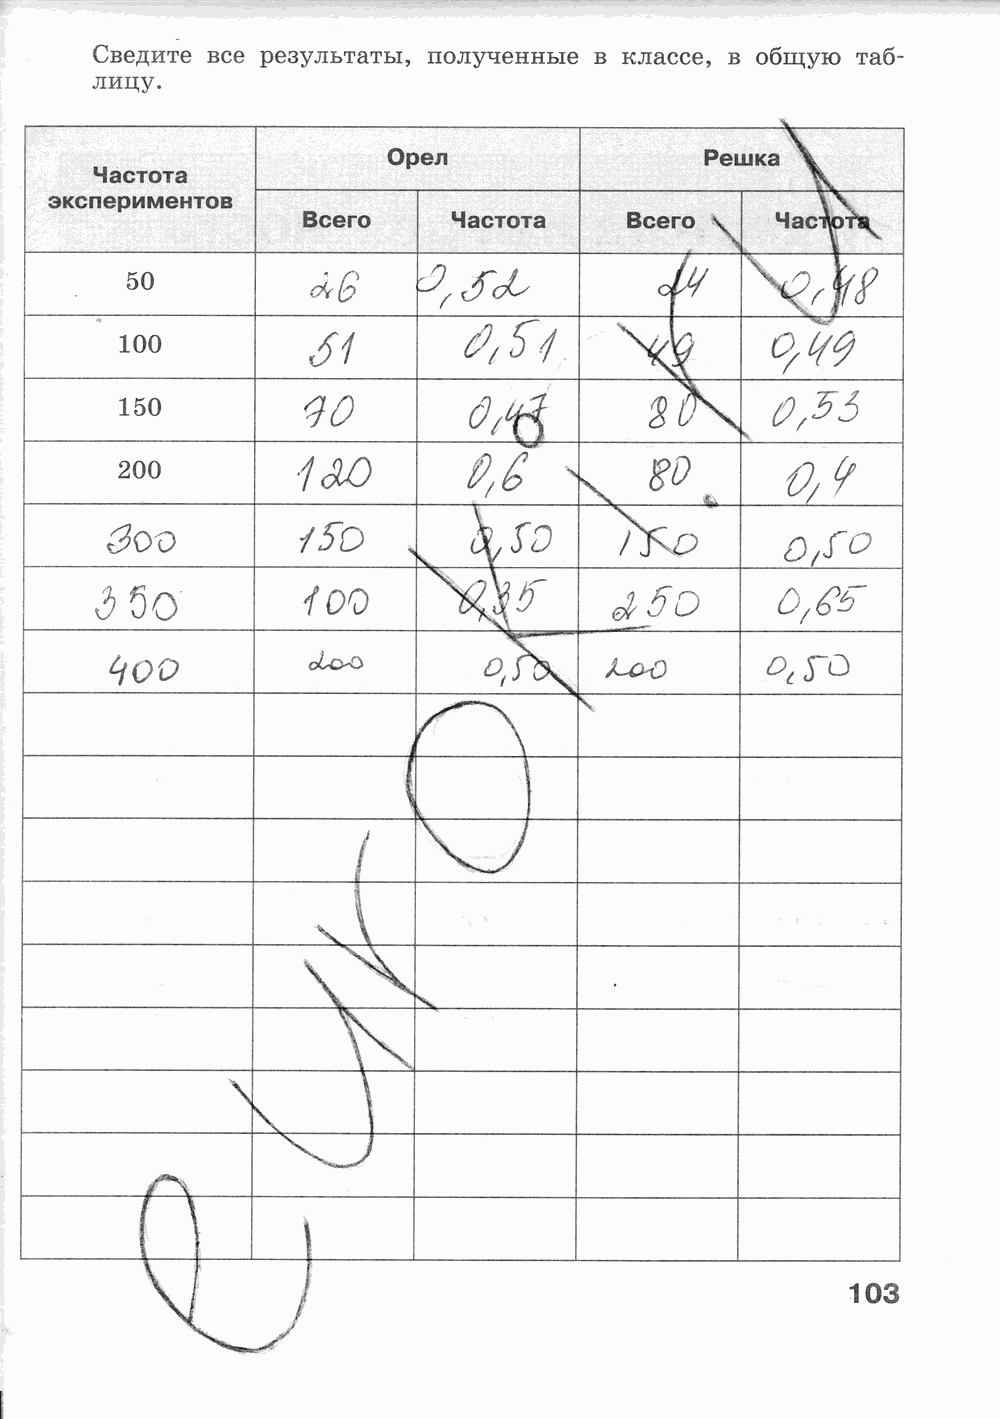 Сведите все результаты, полученные в классе, в общую таб-
лицу.
Частота экспериментов Орел Решка
Всего Частота Всего Частота
50 26 0,52 24 0,48
100 51 0,51 49 0,49
150 70 0,47 80 0,53
200 120 0,6 80 0,4
300 150 0,50 150 0,50
350 100 0,35 250 0,65
400 200 0,50 200 0,50
103